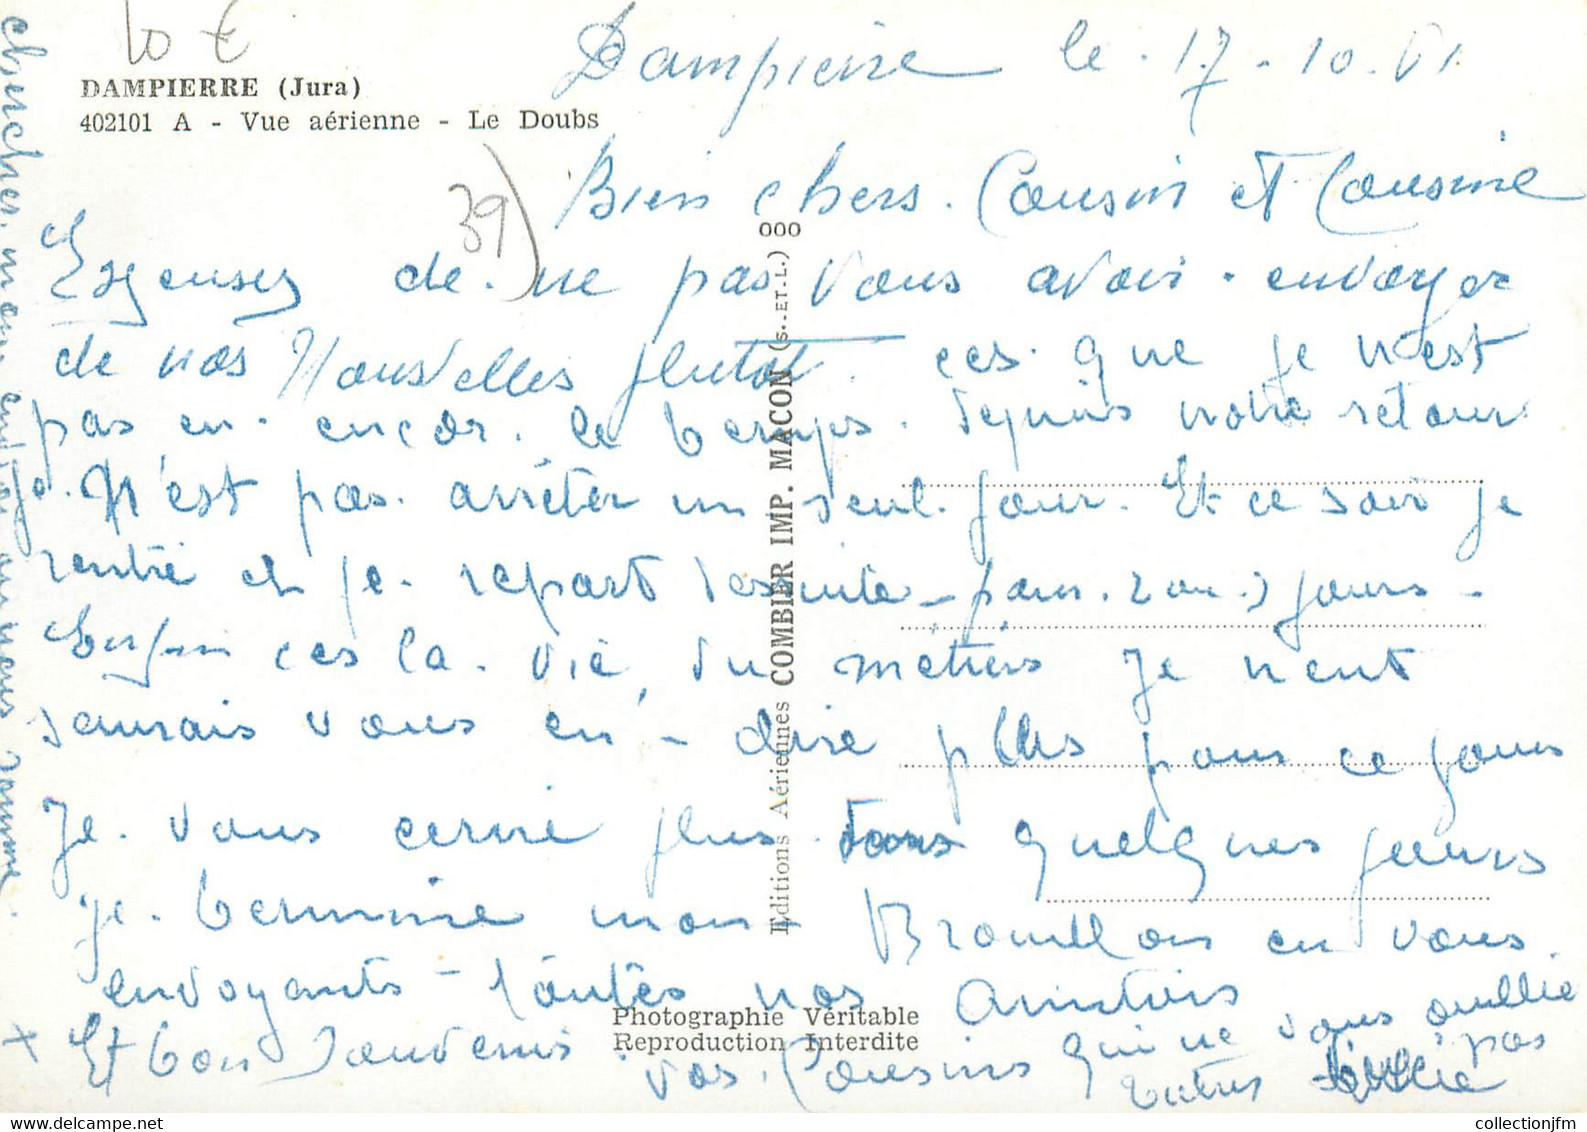 10 €
DAMPIERRE (Jura)
402101 A - Vue aérienne - Le Doubs
39)
Dampierre le . 17 - 10 . 61
Bien chers . Cousin et Cousine
de . ne pas vous avoir . envoyer
de nos Nouvelles plutot . ces . que je n'est
pas en . encor . le temps . depuis notre retour
Je . N'est pas . arrêter un seul . jour . Et ce soir je
rentré et je . repart desuite - pour . 2 ou . 3 jours -
Enfin ces la . vie, du métiers Je neut
saurais vous en - dire plus pour ce jour
Je . vous cerire plus . dans quelques jours
je . termine mon Brouillon en vous
envoyants - toutes nos Amitiers
Et bon Souvenir . vos . Cousins qui ne vous oublie pas
chercher
somme .
000
Editions Aériennes COMBIER IMP. MACON (S.-ET-L.)
Photographie Véritable
Reproduction Interdite
collectionjfm